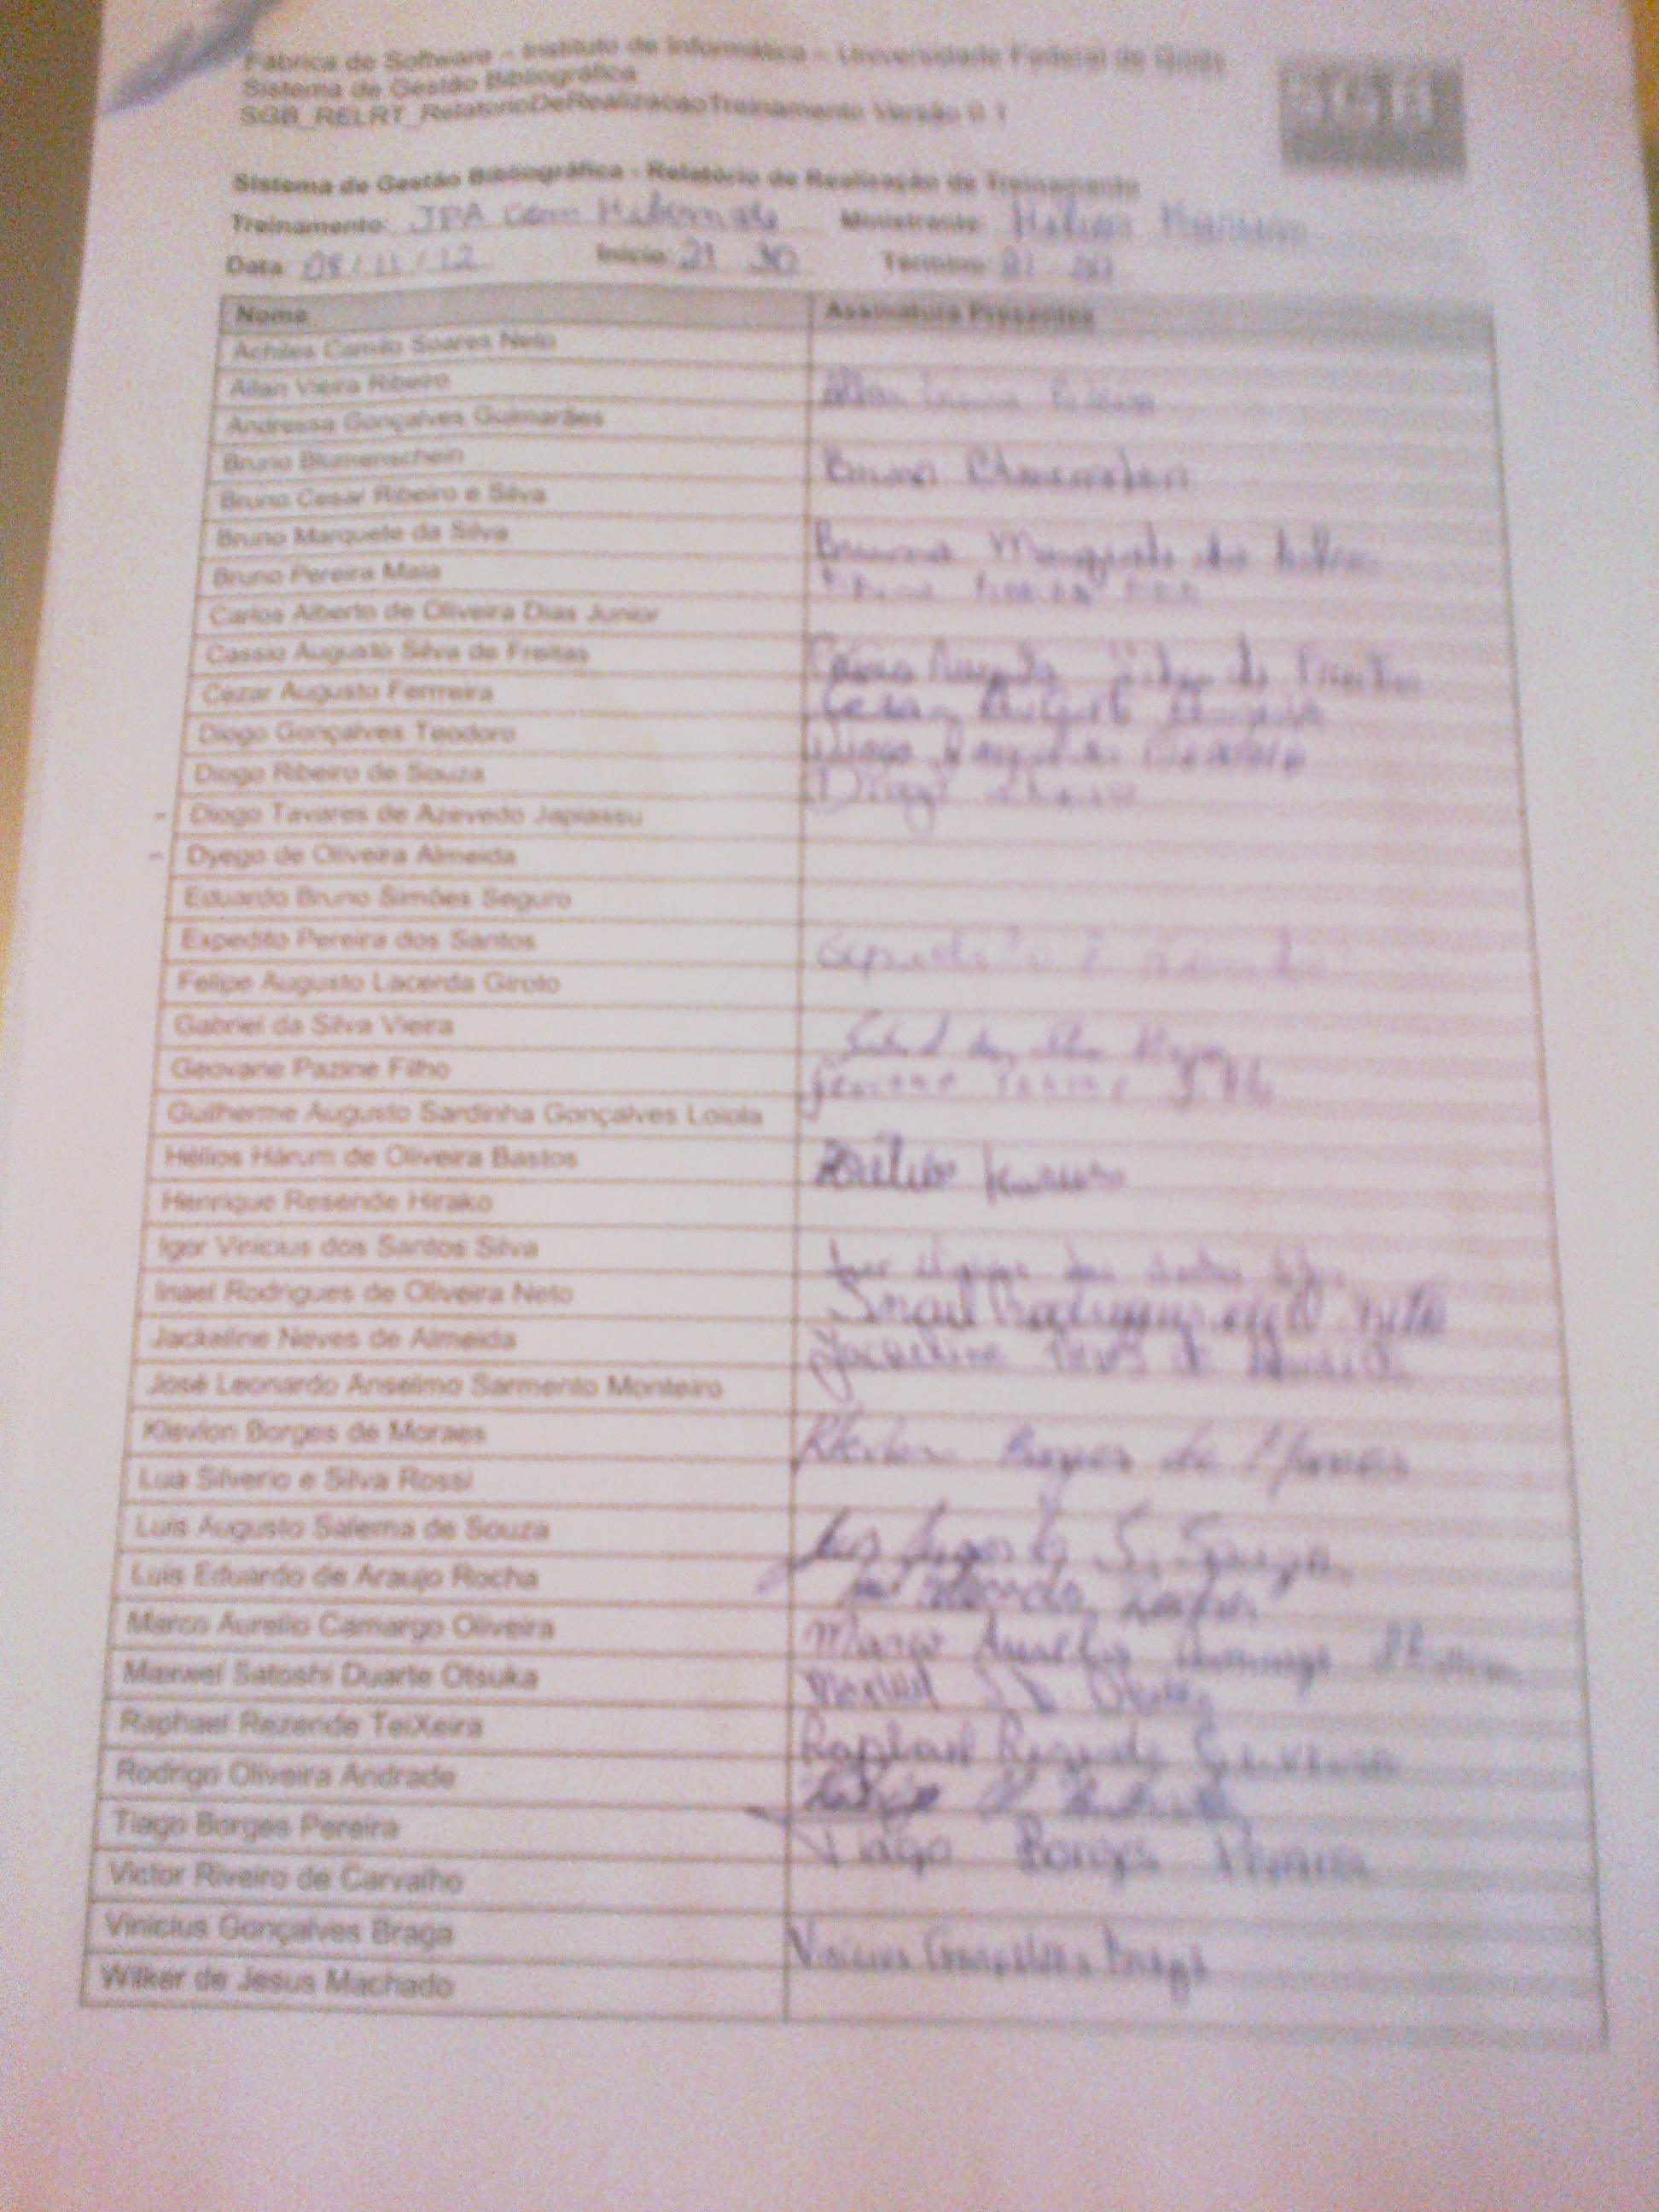 Fábrica de Software – Instituto de Informática – Universidade Federal de Goiás
Sistema de Gestão Bibliográfica
SGB_RELRT_RelatorioDeRealizacaoTreinamento Versão 0.1
SGB
Sistema de Gestão Bibliográfica - Relatório de Realização de Treinamento
Treinamento: JPA com Hibernate Ministrante:
Data: 08/11/12 Início: 21 30 Término:
Nome Assinatura Presentes
Achiles Camilo Soares Neto
Allan Vieira Ribeiro Allan Vieira Ribeiro
Andressa Gonçalves Guimarães
Bruno Blumenschein Bruno Blumenschein
Bruno Cesar Ribeiro e Silva
Bruno Marquete da Silva Bruno Marquete da Silva
Bruno Pereira Maia Bruno Pereira Maia
Carlos Alberto de Oliveira Dias Junior
Cassio Augusto Silva de Freitas Cássio Augusto Silva de Freitas
Cezar Augusto Ferrreira Cezar Augusto Ferreira
Diogo Gonçalves Teodoro Diogo Gonçalves Teodoro
Diogo Ribeiro de Souza Diogo
- Diogo Tavares de Azevedo Japiassu
- Dyego de Oliveira Almeida
Eduardo Bruno Simões Seguro
Expedito Pereira dos Santos Expedito P.
Felipe Augusto Lacerda Giroto
Gabriel da Silva Vieira Gabriel da Silva Vieira
Geovane Pazine Filho Geovane Pazine Filho
Guilherme Augusto Sardinha Gonçalves Loiola
Hélios Hárum de Oliveira Bastos
Henrique Resende Hirako
Igor Vinicius dos Santos Silva Igor Vinicius dos Santos Silva
Inael Rodrigues de Oliveira Neto Inael Rodrigues de O. Neto
Jackeline Neves de Almeida Jackeline Neves de Almeida
José Leonardo Anselmo Sarmento Monteiro
Klevlon Borges de Moraes Klevlon Borges de Moraes
Lua Silverio e Silva Rossi
Luis Augusto Salema de Souza Luis Augusto S. Souza
Luis Eduardo de Araujo Rocha Luis Eduardo Rocha
Marco Aurelio Camargo Oliveira Marco Aurélio Camargo Oliveira
Maxwel Satoshi Duarte Otsuka Maxwel S. D. Otsuka
Raphael Rezende TeiXeira Raphael Rezende Teixeira
Rodrigo Oliveira Andrade Rodrigo O. Andrade
Tiago Borges Pereira Tiago Borges Pereira
Victor Riveiro de Carvalho
Vinicius Gonçalves Braga Vinicius Gonçalves Braga
Wilker de Jesus Machado